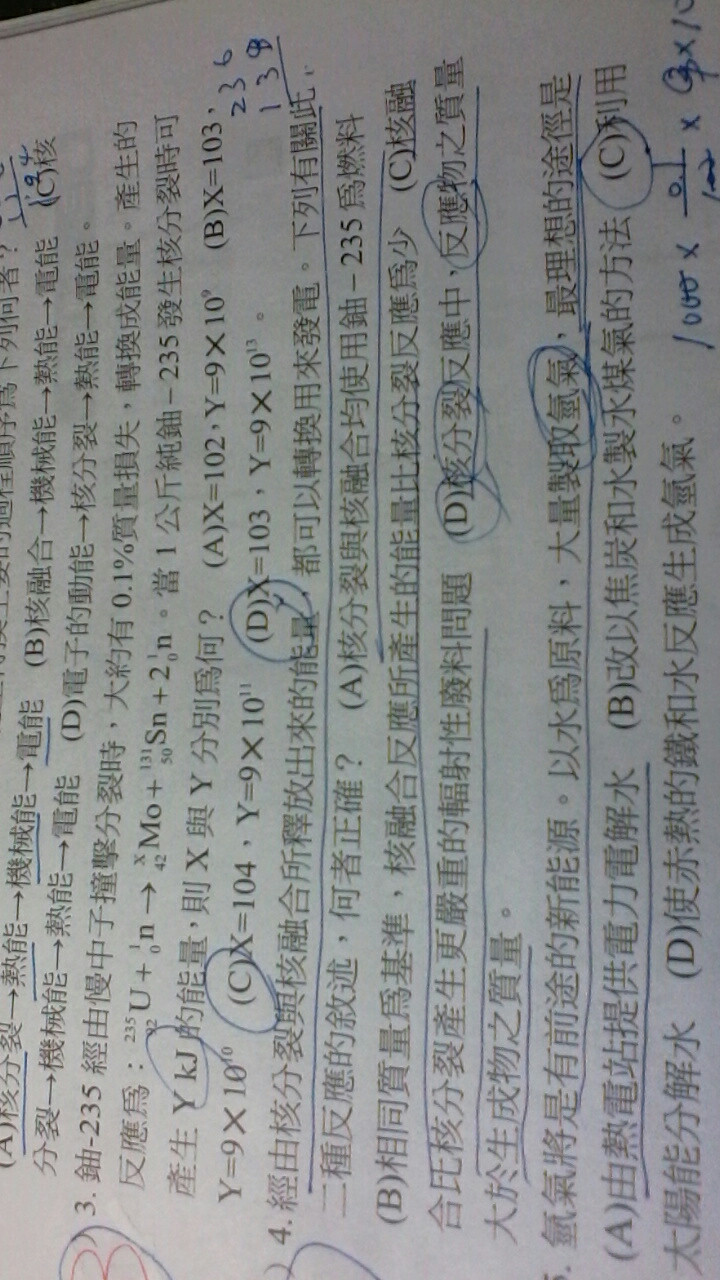 (A)核分裂→熱能→機械能→電能 (B)核融合→機械能→熱能→電能 (C)核
分裂→機械能→熱能→電能 (D)電子的動能→核分裂→熱能→電能。
3. 鈾-235 經由慢中子撞擊分裂時，大約有 0.1%質量損失，轉換成能量。產生的
反應為：²³⁵₉₂U + ¹₀n → ˣ₄₂Mo + ¹³¹₅₀Sn + 2¹₀n。當 1 公斤純鈾－235 發生核分裂時可
產生 Y kJ 的能量，則 X 與 Y 分別為何？ (A)X=102，Y=9×10⁹ (B)X=103，
Y=9×10¹⁰ (C)X=104，Y=9×10¹¹ (D)X=103，Y=9×10¹³。
236
4. 經由核分裂與核融合所釋放出來的能量，都可以轉換用來發電。下列有關此
二種反應的敘述，何者正確？ (A)核分裂與核融合均使用鈾－235 為燃料
(B)相同質量為基準，核融合反應所產生的能量比核分裂反應為少 (C)核融
合比核分裂產生更嚴重的輻射性廢料問題 (D)核分裂反應中，反應物之質量
大於生成物之質量。
氫氣將是有前途的新能源。以水為原料，大量製取氫氣，最理想的途徑是
(A)由熱電站提供電力電解水 (B)改以焦炭和水製水煤氣的方法 (C)利用
太陽能分解水 (D)使赤熱的鐵和水反應生成氫氣。